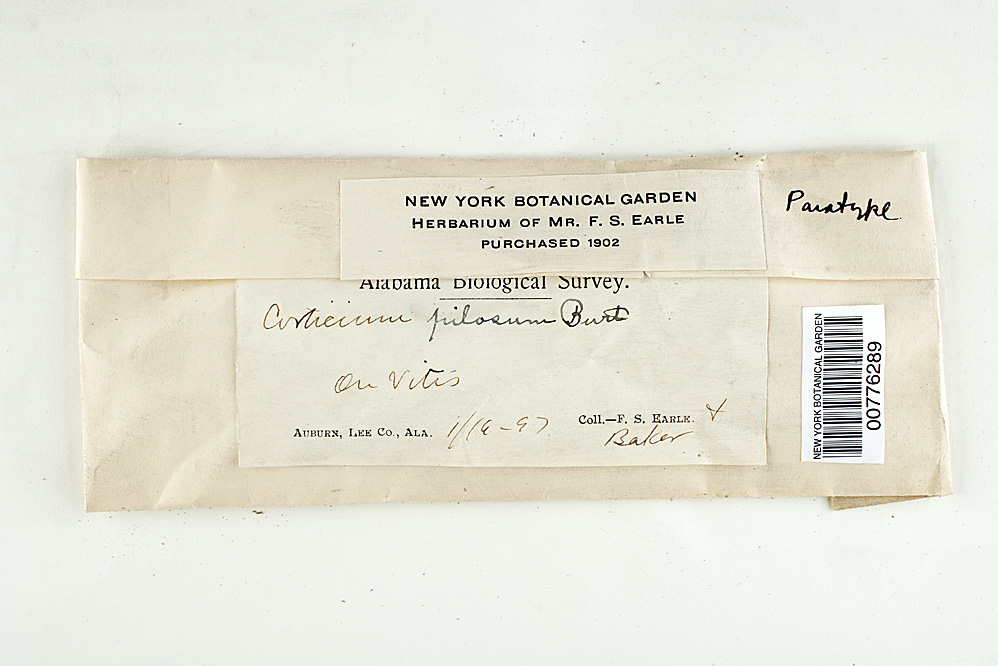 NEW YORK BOTANICAL GARDEN
HERBARIUM OF MR. F. S. EARLE
PURCHASED 1902
Paratype
Alabama Biological Survey.
Corticium pilosum Burt
On Vitis
AUBURN, LEE CO., ALA. 1/19-97 COLL.—F. S. EARLE. &
Baker
NEW YORK BOTANICAL GARDEN
00776289